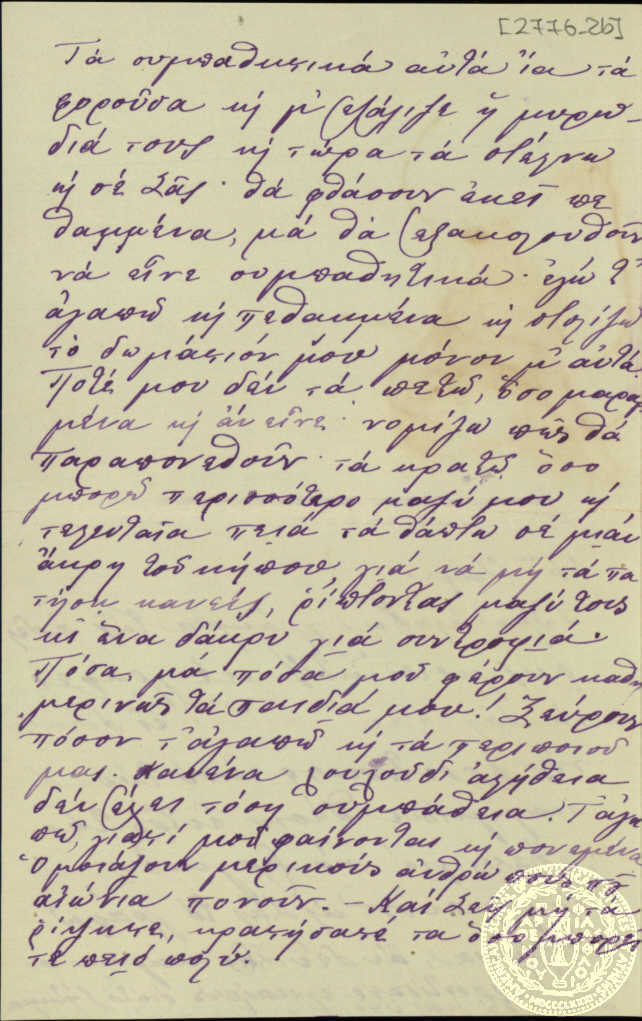 [2776-2b]
Τά συμπαθητικά αὐτά ἴα τά
φοροῦσα κ᾽ μ᾽ ἐζάλιζε ἡ μυρω-
διά τους κ᾽ τώρα τά στέλνω
κ᾽ σέ Σᾶς· θά φθάσουν ἐκεῖ πε
θαμμένα, μά θά ἐξακολουθοῦν
νά εἶνε συμπαθητικά· ἐγώ τ᾽
ἀγαπῶ κ᾽ πεθαμμένα κ᾽ στολίζω
τό δωμάτιόν μου μόνον μ᾽ αὐτά.
Ποτέ μου δέν τά πετῶ, ὅσο μαραμ
μένα κ᾽ ἄν εἶνε· νομίζω πῶς θά
παραπονεθοῦν· τά κρατῶ ὅσο
μπορῶ περισσότερο μαζύ μου κ᾽
τελευταῖα πειά τά θάπτω σέ μιάν
ἄκρη τοῦ κήπου γιά νά μή τά πα
τήση κανείς, ρίπτοντας μαζύ τους
κι ἕνα δάκρυ γιά συντροφιά.
Πόσα, μά πόσα μοῦ φέρουν καθη
μερινῶς τά παιδιά μου! Ξεύρουν
πόσον τ᾽ ἀγαπῶ κ᾽ τά περιποιοῦ
μαι. Κανένα λουλούδι ἀλήθεια
δέν ἔχει τόση συμπάθεια. Τ᾽ ἀγα
πῶ, γιατί μοῦ φαίνονται κ᾽ πονεμένα
Ὁμοιάζουν μερικούς ἀνθρώπους πού
αἰώνια πονοῦν. — Καί Σεῖς μή τά
ρίψητε, κρατήσατέ τα ὅσο μπορεῖ
τε πειό πολύ.